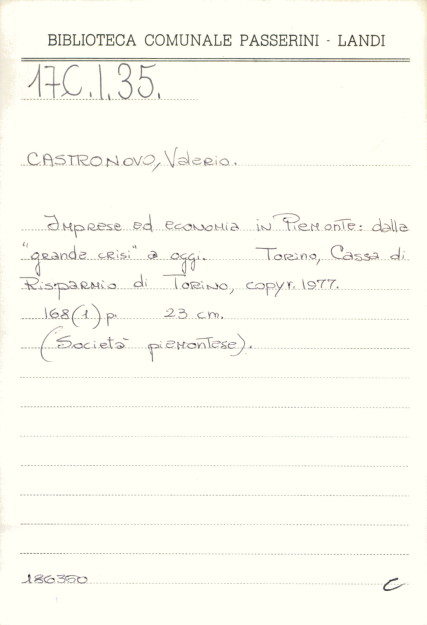 BIBLIOTECA COMUNALE PASSERINI - LANDI
17C.I.35.
CASTRONOVO, Valerio.
Imprese ed economia in Piemonte: dalla
"grande crisi" a oggi. Torino, Cassa di
Risparmio di Torino, copyr. 1977.
168(1) p. 23 cm.
(Società piemontese).
186350 C